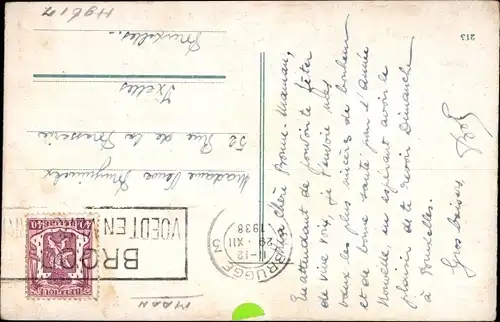 213
Ma chère Bonne-Maman,
En attendant de pouvoir te fêter
de vive voix, je t'envoie mes
vœux les plus sincères de bonheur
et de bonne santé pour l'année
Nouvelle, en espérant avoir le
plaisir de te revoir Dimanche
à Bruxelles.
Gros baisers,
Madame Veuve
52 Rue de la Brasserie
Ixelles
Bruxelles
BRUGGE
29 XII
11-12
1938
3
BROOD
VOEDT EN
40